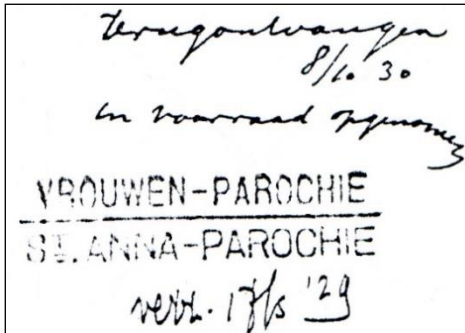 terugontvangen
8/10 30
in voorraad opgenomen
VROUWEN-PAROCHIE
ST. ANNA-PAROCHIE
'29